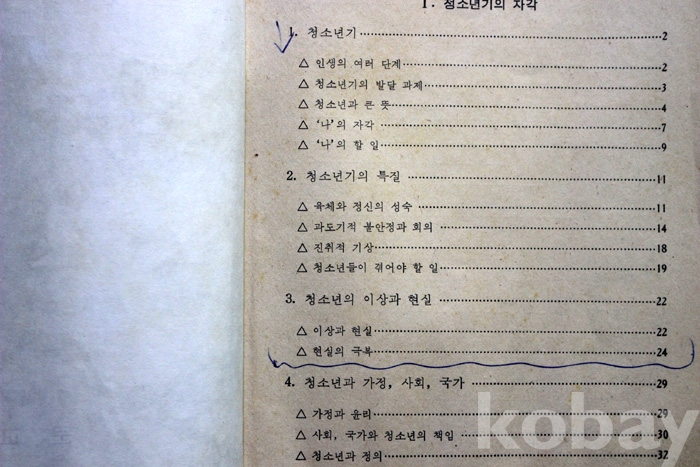 I. 청소년기의 자각
1. 청소년기 2
△ 인생의 여러 단계 2
△ 청소년기의 발달 과제 3
△ 청소년과 큰 뜻 4
△ ‘나’의 자각 7
△ ‘나’의 할 일 9
2. 청소년기의 특질 11
△ 육체와 정신의 성숙 11
△ 과도기적 불안정과 회의 14
△ 진취적 기상 18
△ 청소년들이 겪어야 할 일 19
3. 청소년의 이상과 현실 22
△ 이상과 현실 22
△ 현실의 극복 24
4. 청소년과 가정, 사회, 국가 29
△ 가정과 윤리 29
△ 사회, 국가와 청소년의 책임 30
△ 청소년과 정의 32
kobay